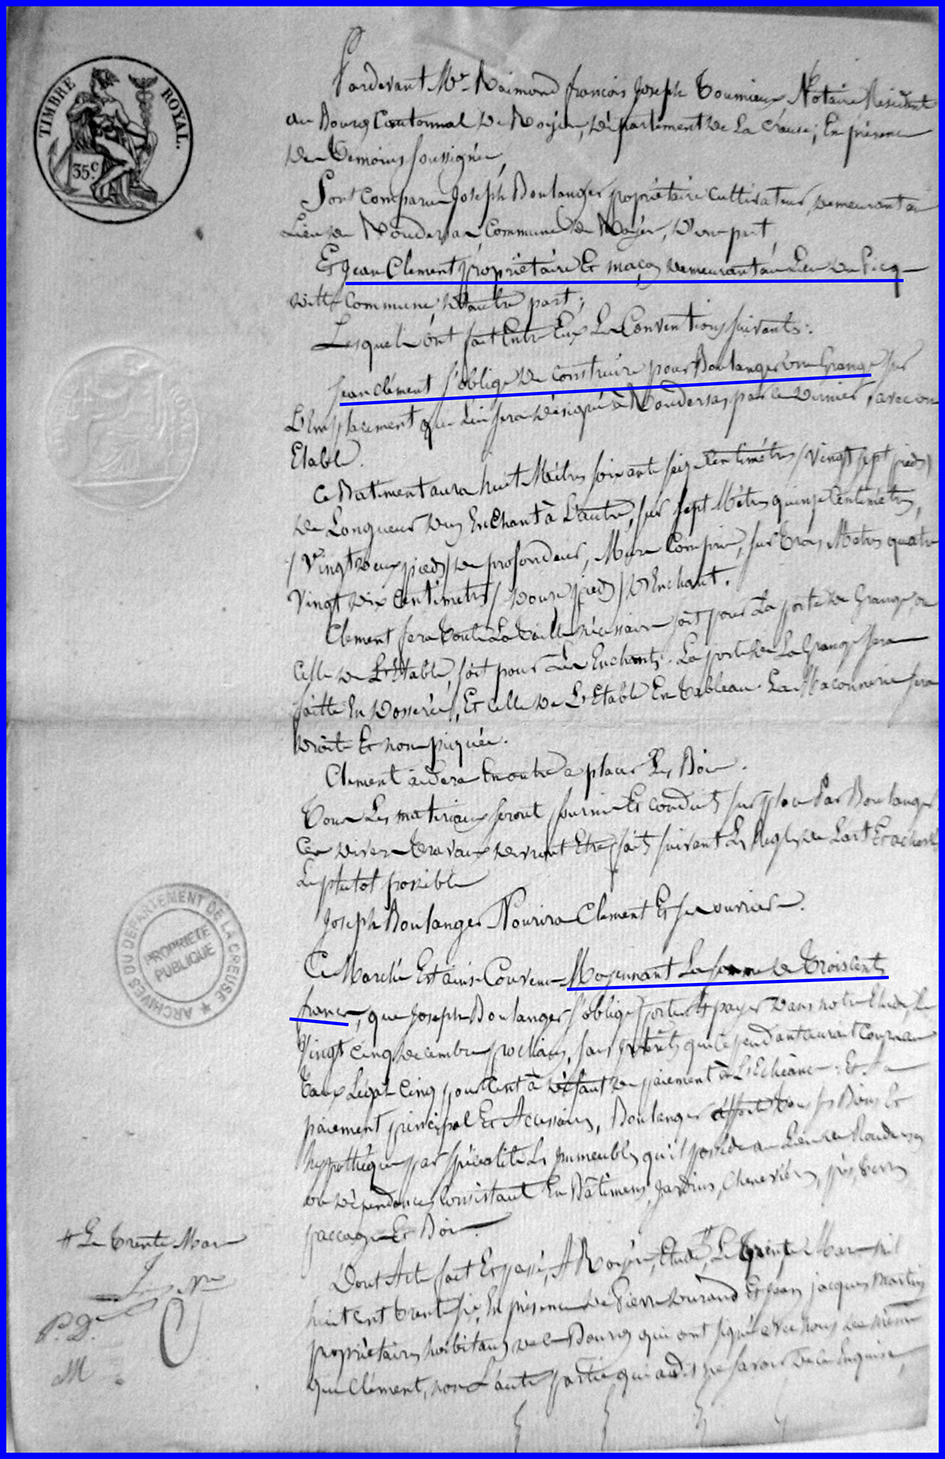 TIMBRE ROYAL.
35c
Pardevant Me Raimond françois Joseph Toumieux Notaire Résident
au Bourg Cantonnal de Royère, département de La Creuse; En présence
de Témoins soussignés,
Sont Comparus Joseph Boulanger propriétaire cultivateur, demeurant au
Lieu de Commune de Royère, D'une part,
Et Jean Clement propriétaire Et maçon demeurant au Lieu du
ditte Commune, d'autre part;
Lesquels ont fait Entre Eux Les Conventions suivantes:
Jean Clément s'oblige de construire pour Boulanger une Grange sur
L'Emplacement qui Lui sera désigné à par ce dernier, avec une
Etable.
Ce Batiment aura huit Mètres soixante seize Centimètres / Vingt sept pieds /
de Longueur d'un Enchant à L'autre, sur sept Mètres quinze Centimètres,
/ Vingt deux pieds / de profondeur, Murs Compris, sur trois Mètres quatre
Vingt dix Centimètres / douze pieds / d'Enchant.
Clement fera toute La taille nécessaire soit pour La porte de Grange ou
Celle de L'Etable, soit pour Les Enchants. La porte de La Grange sera
faitte En , Et celle de L'Etable En tableau. La Maconnerie sera
droite Et non piquée.
Clement aidera En outre a placer Les Bois.
Tous Les matériaux seront fournis Et conduits sur place Par Boulanger
Ces divers travaux devront Etre faits suivant Les Regles de L'art Et achevés
Le plutot possible
Joseph Boulanger Nourira Clement Et ses ouvriers.
Ce Marché Est ainsi Convenu Moyennant La somme de Trois Cent
francs, que Joseph Boulanger s'oblige porter Et payer dans notre Etude Le
Vingt cinq decembre prochain, sans intérêts qui cependant auront Cours au
taux Légal Cinq pour Cent à défaut de paiement à L'Echéance: Et Au
paiement principal Et Accessoires, Boulanger affecte tous ses Biens Et
hypothèque par spécialité Les Immeubles qu'il possède au Lieu de
ou dépendances, Consistant En Bâtimens, Jardins, Chenevières, prés, terres
paccages Et Bois.
Dont Acte fait Et passé, A Royère, Etude, # Le trente Mars mil
huit cent trente six, En présence de Pierre Durand Et Jean jacques Martin
propriétaires, habitans de ce Bourg qui ont signé avec nous de même
que Clément, non L'autre partie qui a dit ne savoir de ce Enquise,
# Le trente Mars
P. D.
M
ARCHIVES DU DEPARTEMENT DE LA CREUSE
PROPRIÉTÉ
PUBLIQUE